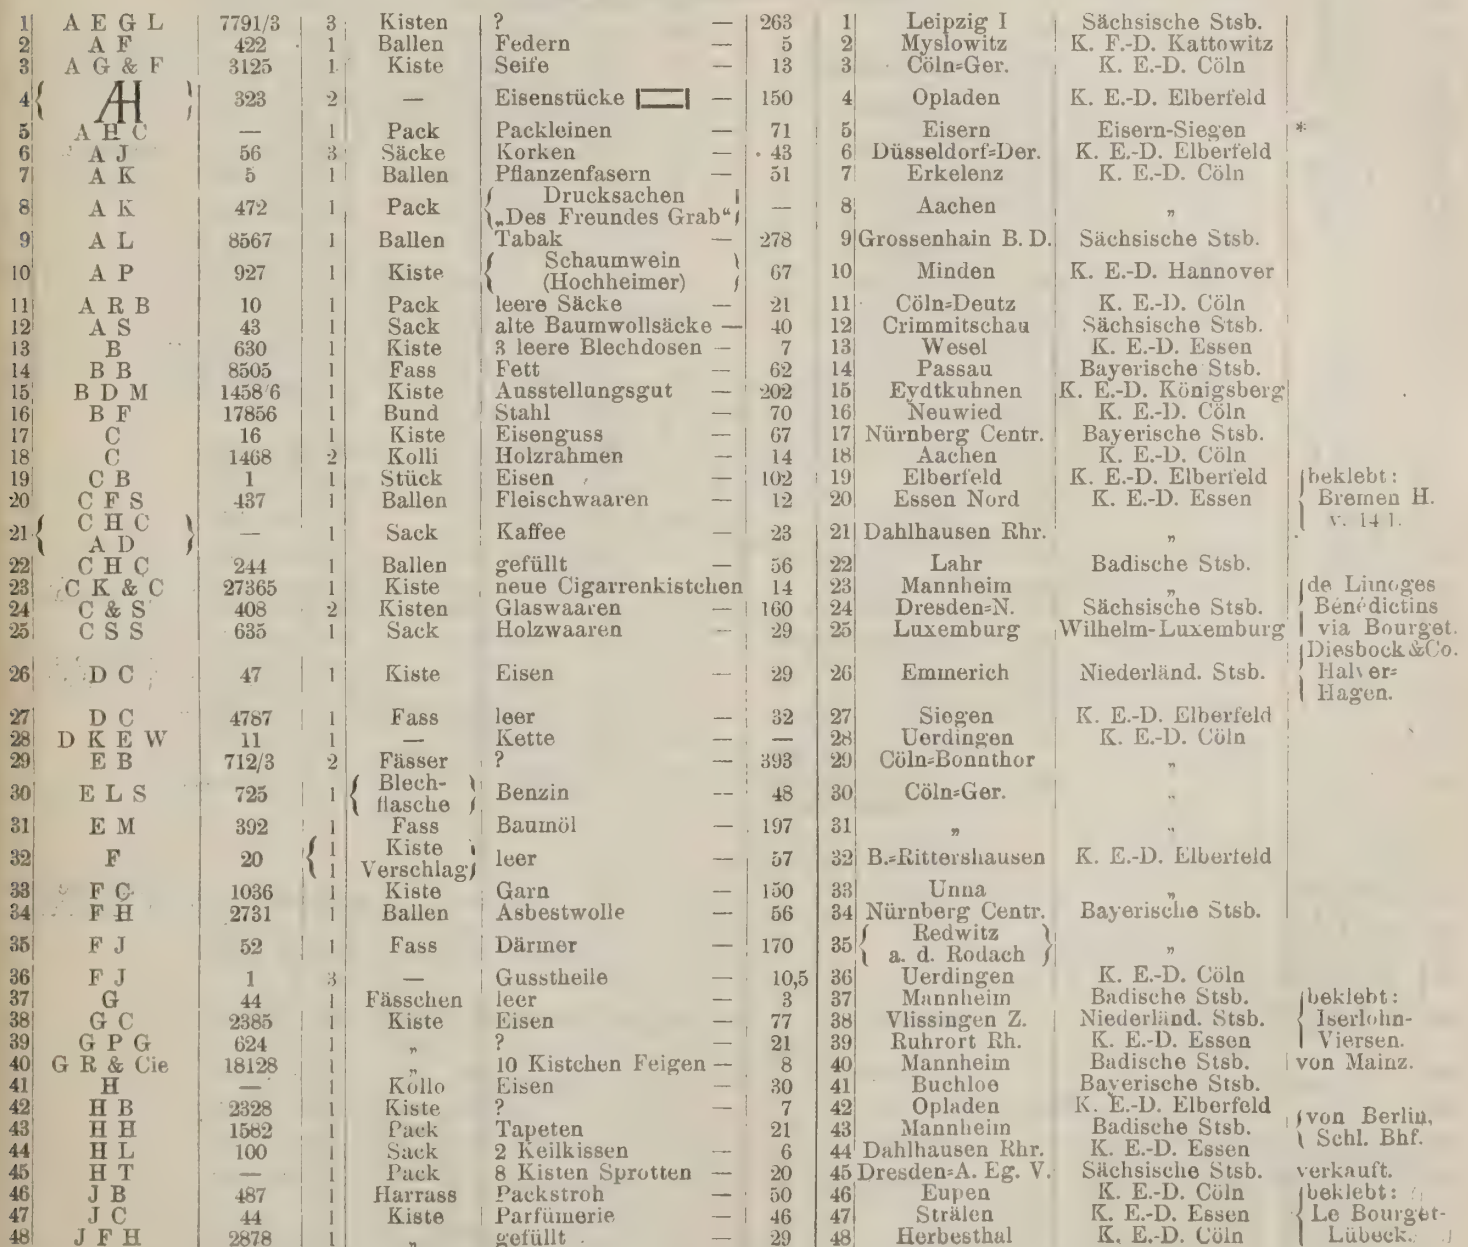 1 A E G L 7791/3 3 Kisten ? — 263 1 Leipzig I Sächsische Stsb.
2 A F 422 1 Ballen Federn — 5 2 Myslowitz K. F.-D. Kattowitz
3 A G & F 3125 1 Kiste Seife — 13 3 Cöln-Ger. K. E.-D. Cöln
4 { AH } 323 2 — Eisenstücke — 150 4 Opladen K. E.-D. Elberfeld
5 A H C — 1 Pack Packleinen — 71 5 Eisern Eisern-Siegen *
6 A J 56 3 Säcke Korken — 43 6 Düsseldorf-Der. K. E.-D. Elberfeld
7 A K 5 1 Ballen Pflanzenfasern — 51 7 Erkelenz K. E.-D. Cöln
8 A K 472 1 Pack { Drucksachen „Des Freundes Grab“ } — 8 Aachen „
9 A L 8567 1 Ballen Tabak — 278 9 Grossenhain B. D. Sächsische Stsb.
10 A P 927 1 Kiste { Schaumwein (Hochheimer) } 67 10 Minden K. E.-D. Hannover
11 A R B 10 1 Pack leere Säcke — 21 11 Cöln-Deutz K. E.-D. Cöln
12 A S 43 1 Sack alte Baumwollsäcke — 40 12 Crimmitschau Sächsische Stsb.
13 B 630 1 Kiste 3 leere Blechdosen — 7 13 Wesel K. E.-D. Essen
14 B B 8505 1 Fass Fett — 62 14 Passau Bayerische Stsb.
15 B D M 1458/6 1 Kiste Ausstellungsgut — 202 15 Eydtkuhnen K. E.-D. Königsberg
16 B F 17856 1 Bund Stahl — 70 16 Neuwied K. E.-D. Cöln
17 C 16 1 Kiste Eisenguss — 67 17 Nürnberg Centr. Bayerische Stsb.
18 C 1468 2 Kolli Holzrahmen — 14 18 Aachen K. E.-D. Cöln
19 C B 1 1 Stück Eisen — 102 19 Elberfeld K. E.-D. Elberfeld { beklebt:
20 C F S 437 1 Ballen Fleischwaaren — 12 20 Essen Nord K. E.-D. Essen Bremen H.
21 { C H C A D } — 1 Sack Kaffee — 23 21 Dahlhausen Rhr. „ v. 14 1.
22 C H C 244 1 Ballen gefüllt — 56 22 Lahr Badische Stsb.
23 C K & C 27365 1 Kiste neue Cigarrenkistchen 14 23 Mannheim „ { de Limoges
24 C & S 408 2 Kisten Glaswaaren — 160 24 Dresden-N. Sächsische Stsb. Bénédictins
25 C S S 635 1 Sack Holzwaaren — 29 25 Luxemburg Wilhelm-Luxemburg via Bourget.
26 D C 47 1 Kiste Eisen — 29 26 Emmerich Niederländ. Stsb. { Diesbock & Co. Halver- Hagen.
27 D C 4787 1 Fass leer — 32 27 Siegen K. E.-D. Elberfeld
28 D K E W 11 1 — Kette — — 28 Uerdingen K. E.-D. Cöln
29 E B 712/3 2 Fässer ? — 393 29 Cöln-Bonnthor „
30 E L S 725 1 { Blech- flasche } Benzin — 48 30 Cöln-Ger. „
31 E M 392 1 Fass Baumöl — 197 31 „ „
32 F 20 { 1 Kiste 1 Verschlag } leer — 57 32 B.-Rittershausen K. E.-D. Elberfeld
33 F C 1036 1 Kiste Garn — 150 33 Unna „
34 F H 2731 1 Ballen Asbestwolle — 56 34 Nürnberg Centr. Bayerische Stsb.
35 F J 52 1 Fass Därmer — 170 35 { Redwitz a. d. Rodach } „
36 F J 1 3 — Gusstheile — 10,5 36 Uerdingen K. E.-D. Cöln
37 G 44 1 Fässchen leer — 3 37 Mannheim Badische Stsb. { beklebt:
38 G C 2385 1 Kiste Eisen — 77 38 Vlissingen Z. Niederländ. Stsb. Iserlohn-
39 G P G 624 1 „ ? — 21 39 Ruhrort Rh. K. E.-D. Essen Viersen.
40 G R & Cie 18128 1 „ 10 Kistchen Feigen — 8 40 Mannheim Badische Stsb. von Mainz.
41 H — 1 Kollo Eisen — 30 41 Buchloe Bayerische Stsb.
42 H B 2328 1 Kiste ? — 7 42 Opladen K. E.-D. Elberfeld
43 H H 1582 1 Pack Tapeten 21 43 Mannheim Badische Stsb. { von Berlin, Schl. Bhf.
44 H L 100 1 Sack 2 Keilkissen — 6 44 Dahlhausen Rhr. K. E.-D. Essen
45 H T — 1 Pack 8 Kisten Sprotten — 20 45 Dresden-A. Eg. V. Sächsische Stsb. verkauft.
46 J B 487 1 Harrass Packstroh — 50 46 Eupen K. E.-D. Cöln { beklebt:
47 J C 44 1 Kiste Parfümerie — 46 47 Strälen K. E.-D. Essen Le Bourget-
48 J F H 2878 1 „ gefüllt — 29 48 Herbesthal K. E.-D. Cöln Lübeck.